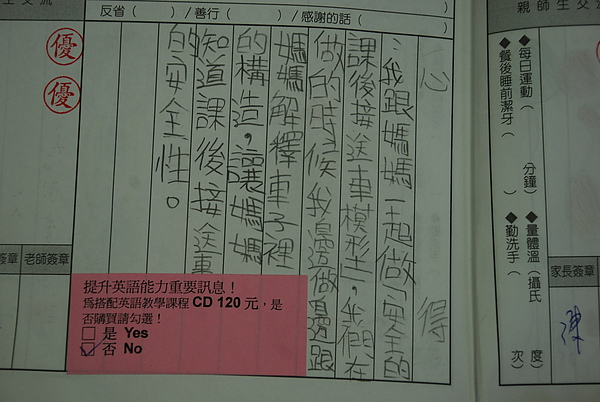 親師生交流
◆每日運動(　　分鐘)
◆餐後睡前潔牙(　　)
◆量體溫(攝氏　　度)
◆勤洗手(　　次)
家長簽章
陳
反省(　　)/善行(　　)/感謝的話(　　)
心得
：我跟媽媽一起做安全的
課後接送車模型，我們在
做的時候我邊做邊跟
媽媽解釋車子裡
的構造，讓媽媽
知道課後接送車
的安全性。
提升英語能力重要訊息！
為搭配英語教學課程 CD 120 元，是
否購買請勾選！
□ 是 Yes
☑ 否 No
生交流
優
優
簽章
老師簽章